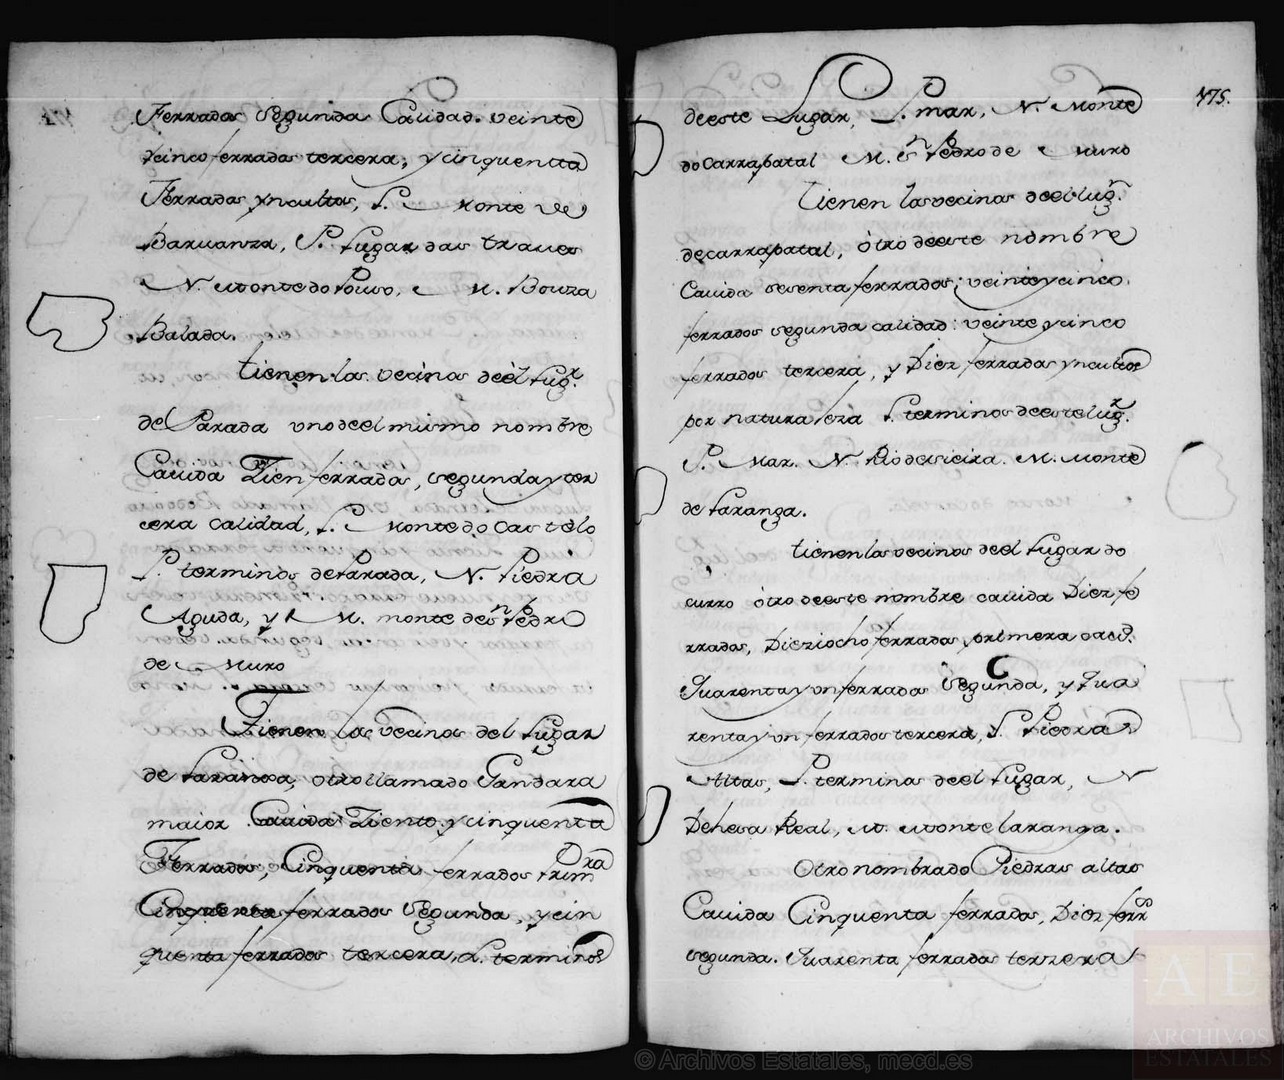 Ferrados segunda Calidad. veinte
ycinco ferrados tercera, y cinquenta
Ferrados yncultos, L. Monte de
Barvanza, P. Lugar das traves
N. Monte do Pouso, M. Bouza
Balada.
tienen los vecinos deel Lugr.
de Parada uno deel mismo nombre
Cavida Zien ferrados, segunda y ter
cera calidad, L. Monte do Castelo
P. terminos de Parada, N. Piedra
Aguda, y M. monte de Sn. Pedro
de Muro
Tienen los Vecinos del Lugar
de Laranga, otro llamado Gandara
maior Cavida Ziento y cinquenta
Ferrados, Cinquenta ferrados Primra
Cinquenta ferrados Segunda, y cin
quenta ferrados tercera, L. terminos
475.
de este Lugar, P. mar, N. Monte
do Carrapatal M. Sn. Pedro de Muro
Tienen los vecinos deel lugr.
de carrapatal, otro de este nombre
Cavida sesenta ferrados; veinte y cinco
ferrados segunda calidad: veinte y cinco
ferrados tercera, y Diez ferrados yncultos
por naturaleza L. terminos de este lugr.
P. Mar. N. Rio de Sieira. M. Monte
de Laranga.
tienen los vecinos deel Lugar do
curro otro de este nombre cavida Diez fe
rrados, Dieziocho ferrados primera
Quarenta y un ferrados Segunda, y Qua
renta y un ferrados tercera, L. Piedras
Altas, P. terminos deel Lugar, N
Dehesa Real, M. Monte laranga.
Otro nombrado Piedras altas
Cavida Cinquenta ferrados, Diez ferros
segunda. Quarenta ferrados terzera
© Archivos Estatales, mecd.es
AE
ARCHIVOS
ESTATALES